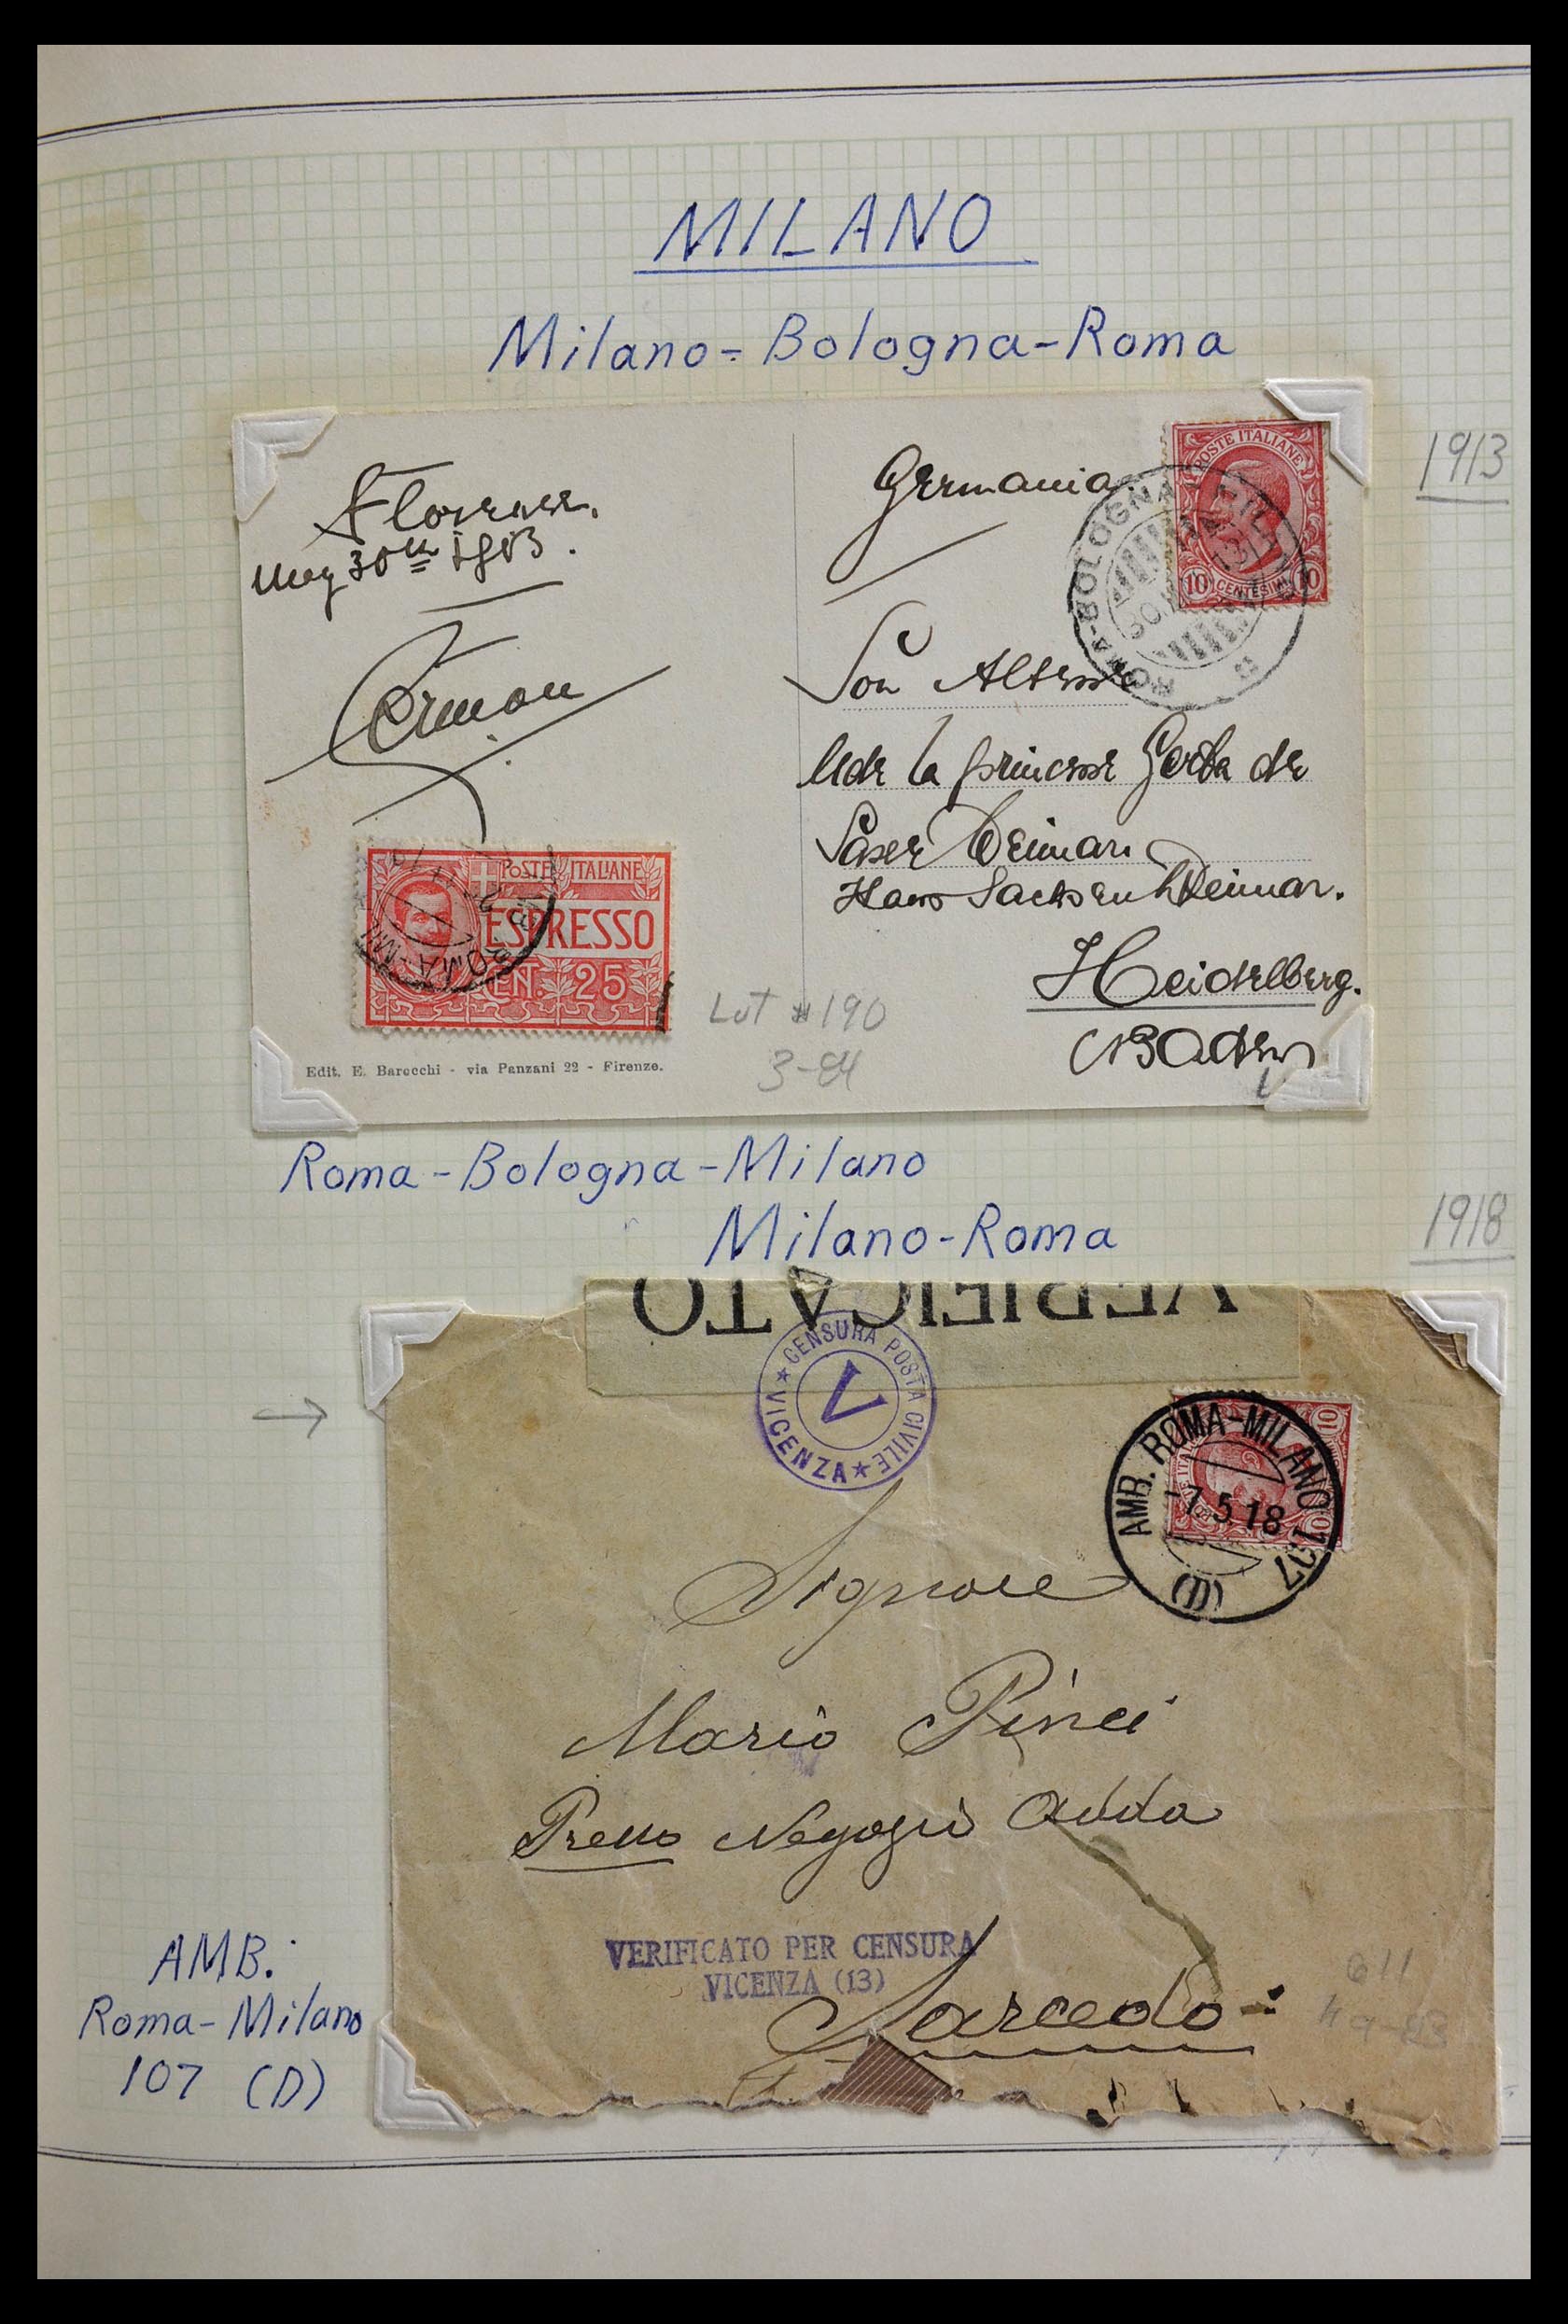 MILANO
Milano-Bologna-Roma
1913
Florence.
May 30th 1913.
Germania.
POSTE ITALIANE
10 CENTESIMI 10
ROMA-BOLOGNA
Son Altesse
la princesse Gerta de
Saxe Weimar
Hans Sachsen Weimar.
Heidelberg.
(Baden)
POSTE ITALIANE
ESPRESSO
CENT. 25
ROMA-MI
Lot #190
3-84
Edit. E. Barocchi - via Panzani 22 - Firenze.
Roma-Bologna-Milano
1918
Milano-Roma
VERIFICATO
CENSURA POSTA CIVILE
V
★ VICENZA ★
AMB. ROMA-MILANO 107
-7.5.18
(D)
10
Signore
Mario Pinci
Presso Negozio Adda
VERIFICATO PER CENSURA
VICENZA (13)
Sarcedo
611
AMB.
Roma-Milano
107 (D)